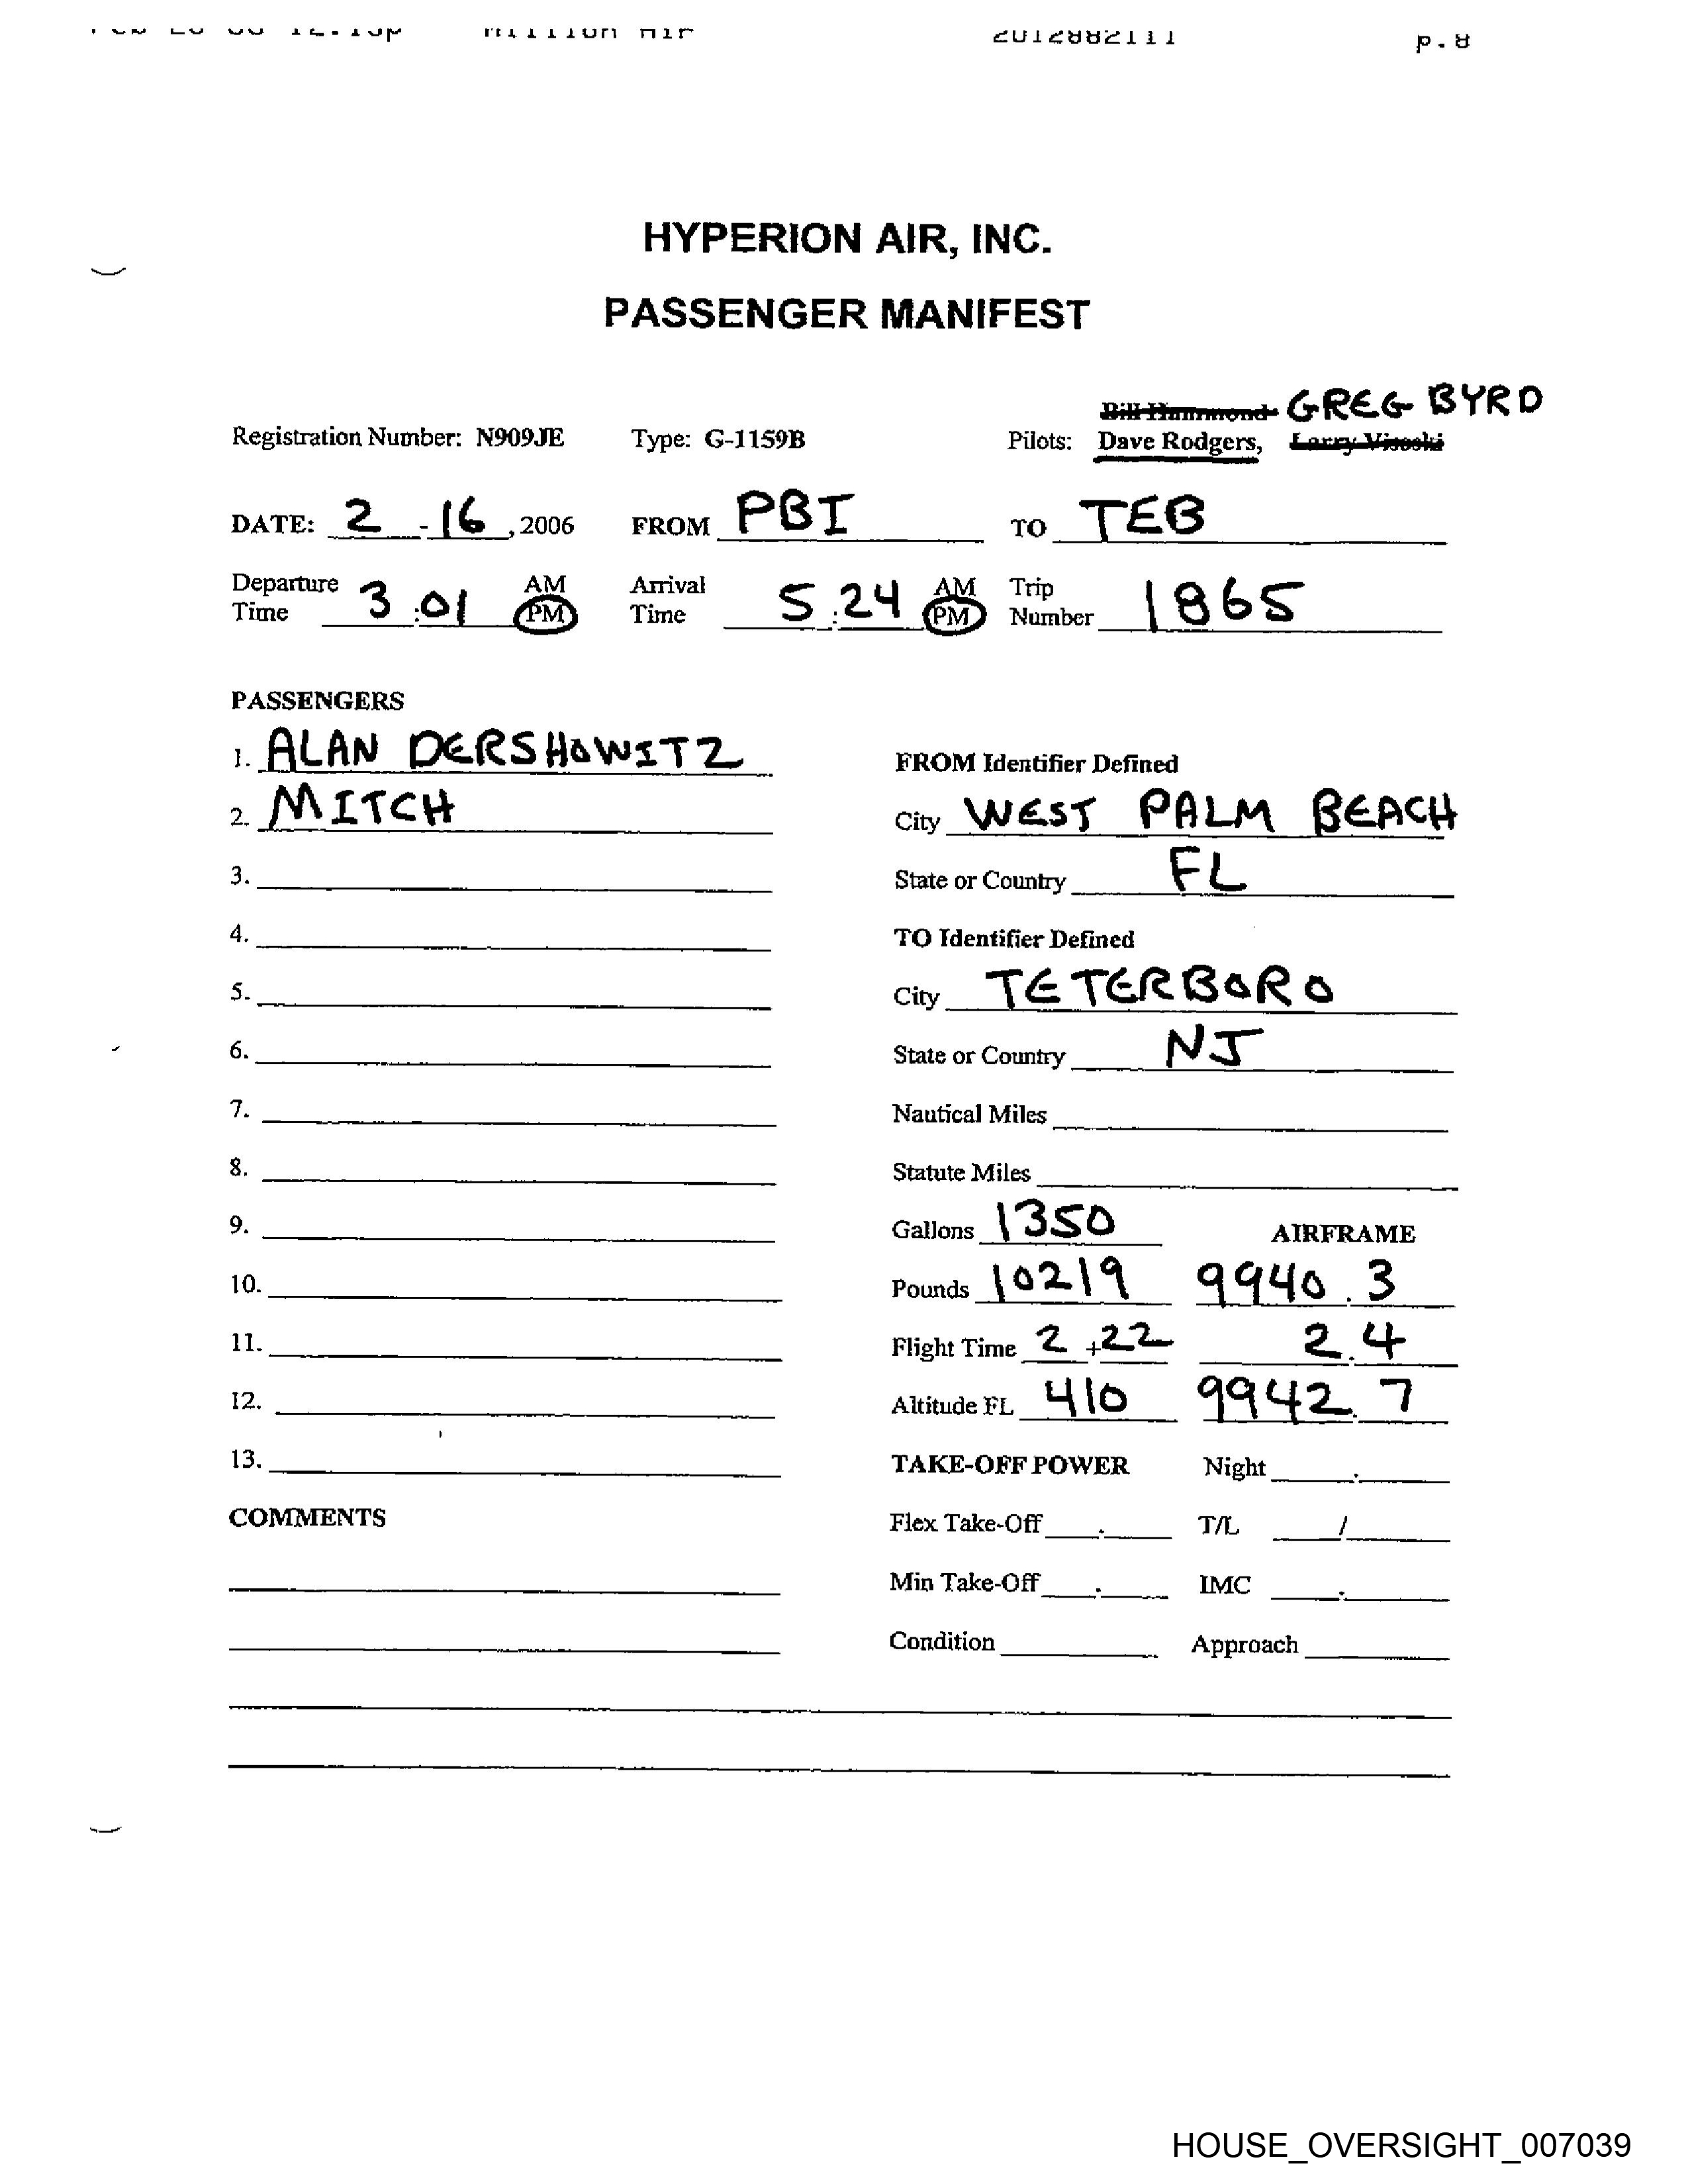 Million Air 2012882111 p.8
HYPERION AIR, INC.
PASSENGER MANIFEST
Bill Hammond GREG BYRD
Registration Number: N909JE Type: G-1159B Pilots: Dave Rodgers, Larry Visoski
DATE: 2 - 16 , 2006 FROM PBI TO TEB
Departure Time 3 : 01 AM PM Arrival Time 5 : 24 AM PM Trip Number 1865
PASSENGERS
1. ALAN DERSHOWITZ
FROM Identifier Defined
2. MITCH
City WEST PALM BEACH
3.
State or Country FL
4.
TO Identifier Defined
5.
City TETERBORO
6.
State or Country NJ
7.
Nautical Miles
8.
Statute Miles
9.
Gallons 1350 AIRFRAME
10.
Pounds 10219 9940.3
11.
Flight Time 2 + 22 2.4
12.
Altitude FL 410 9942.7
13.
TAKE-OFF POWER Night .
COMMENTS
Flex Take-Off . T/L /
Min Take-Off . IMC .
Condition Approach
HOUSE_OVERSIGHT_007039